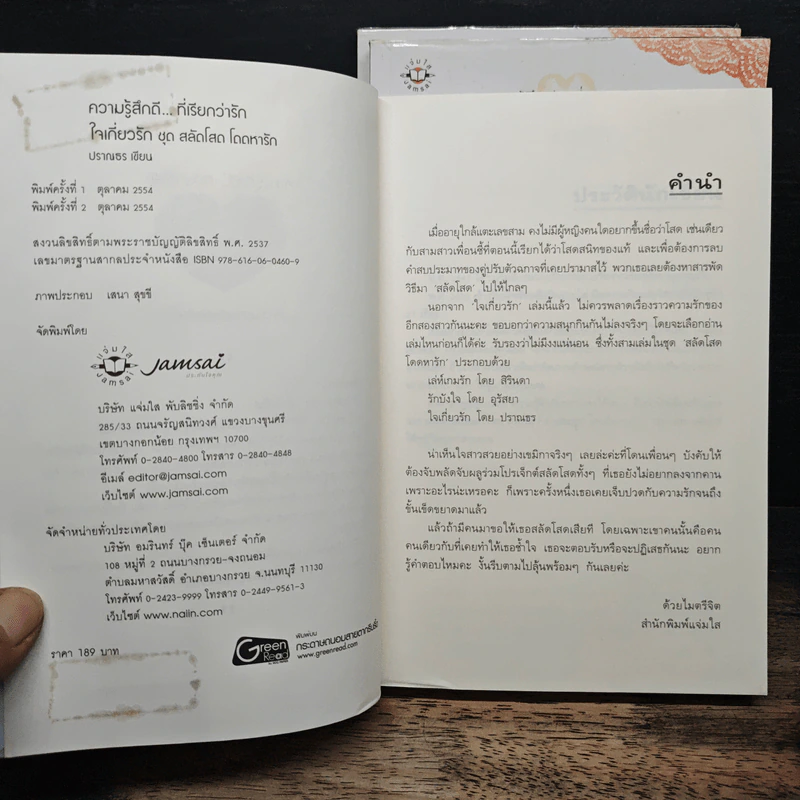 ความรู้สึกดี... ที่เรียกว่ารัก
ใจเกี่ยวรัก ชุด สลัดโสด โดดหารัก
ปราณธร เขียน
พิมพ์ครั้งที่ 1 ตุลาคม 2554
พิมพ์ครั้งที่ 2 ตุลาคม 2554
สงวนลิขสิทธิ์ตามพระราชบัญญัติลิขสิทธิ์ พ.ศ. 2537
เลขมาตรฐานสากลประจำหนังสือ ISBN 978-616-06-0460-9
ภาพประกอบ เสนา สุขขี
จัดพิมพ์โดย
แจ่มใส
Jamsai
Jamsai
บริษัท แจ่มใส พับลิชชิ่ง จำกัด
285/33 ถนนจรัญสนิทวงศ์ แขวงบางขุนศรี
เขตบางกอกน้อย กรุงเทพฯ 10700
โทรศัพท์ 0-2840-4800 โทรสาร 0-2840-4848
อีเมล์ editor@jamsai.com
เว็บไซต์ www.jamsai.com
จัดจำหน่ายทั่วประเทศโดย
บริษัท อมรินทร์ บุ๊ค เซ็นเตอร์ จำกัด
108 หมู่ที่ 2 ถนนบางกรวย-จงถนอม
ตำบลมหาสวัสดิ์ อำเภอบางกรวย จ.นนทบุรี 11130
โทรศัพท์ 0-2423-9999 โทรสาร 0-2449-9561-3
เว็บไซต์ www.naiin.com
ราคา 189 บาท
Green Read
พิมพ์บน
กระดาษถนอมสายตากรีนรี้ด
www.greenread.com
แจ่มใส
Jamsai
คำนำ
เมื่ออายุใกล้แตะเลขสาม คงไม่มีผู้หญิงคนใดอยากขึ้นชื่อว่าโสด เช่นเดียว
กับสามสาวเพื่อนซี้ที่ตอนนี้เรียกได้ว่าโสดสนิทของแท้ และเพื่อต้องการลบ
คำสบประมาทของคู่ปรับตัวฉกาจที่เคยปรามาสไว้ พวกเธอเลยต้องหาสารพัด
วิธีมา ‘สลัดโสด’ ไปให้ไกลๆ
นอกจาก ‘ใจเกี่ยวรัก’ เล่มนี้แล้ว ไม่ควรพลาดเรื่องราวความรักของ
อีกสองสาวกันนะคะ ขอบอกว่าความสนุกกินกันไม่ลงจริงๆ โดยจะเลือกอ่าน
เล่มไหนก่อนก็ได้ค่ะ รับรองว่าไม่มีงงแน่นอน ซึ่งทั้งสามเล่มในชุด ‘สลัดโสด
โดดหารัก’ ประกอบด้วย
เล่ห์เกมรัก โดย สิรินดา
รักบังใจ โดย อุรัสยา
ใจเกี่ยวรัก โดย ปราณธร
น่าเห็นใจสาวสวยอย่างเขมิกาจริงๆ เลยล่ะค่ะที่โดนเพื่อนๆ บังคับให้
ต้องจับพลัดจับผลูร่วมโปรเจ็กต์สลัดโสดทั้งๆ ที่เธอยังไม่อยากลงจากคาน
เพราะอะไรน่ะเหรอคะ ก็เพราะครั้งหนึ่งเธอเคยเจ็บปวดกับความรักจนถึง
ขั้นเข็ดขยาดมาแล้ว
แล้วถ้ามีคนมาขอให้เธอสลัดโสดเสียที โดยเฉพาะเขาคนนั้นคือคน
คนเดียวกับที่เคยทำให้เธอช้ำใจ เธอจะตอบรับหรือจะปฏิเสธกันนะ อยาก
รู้คำตอบไหมคะ งั้นรีบตามไปลุ้นพร้อมๆ กันเลยค่ะ
ด้วยไมตรีจิต
สำนักพิมพ์แจ่มใส